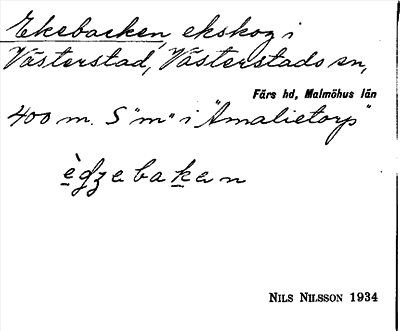 Ekebacken, ekskog i
Västerstad, Västerstads sn,
Färs hd, Malmöhus län
400 m. S "m" i "Amalietorp"
èǥzebaken
NILS NILSSON 1934